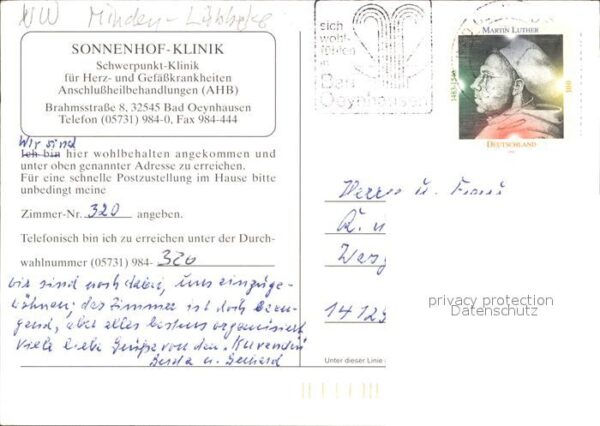 NW Minden-Lübbecke
SONNENHOF-KLINIK
Schwerpunkt-Klinik
für Herz- und Gefäßkrankheiten
Anschlußheilbehandlungen (AHB)
Brahmsstraße 8, 32545 Bad Oeynhausen
Telefon (05731) 984-0, Fax 984-444
Wir sind
Ich bin hier wohlbehalten angekommen und
unter oben genannter Adresse zu erreichen.
Für eine schnelle Postzustellung im Hause bitte
unbedingt meine
Zimmer-Nr. 320 angeben.
Telefonisch bin ich zu erreichen unter der Durch-
wahlnummer (05731) 984- 320
wir sind noch dabei, uns einzuge-
wöhnen; das Zimmer ist doch beeng-
end, aber alles bestens organisiert
Viele liebe Grüße von den "Kurenden"
Gerda u. Gerhard
sich
wohl-
fühlen
in
Bad
Oeynhausen
MARTIN LUTHER
1483-1546
100
DEUTSCHLAND
Herrn u. Frau
R.
14129
Unter dieser Linie
privacy protection
Datenschutz